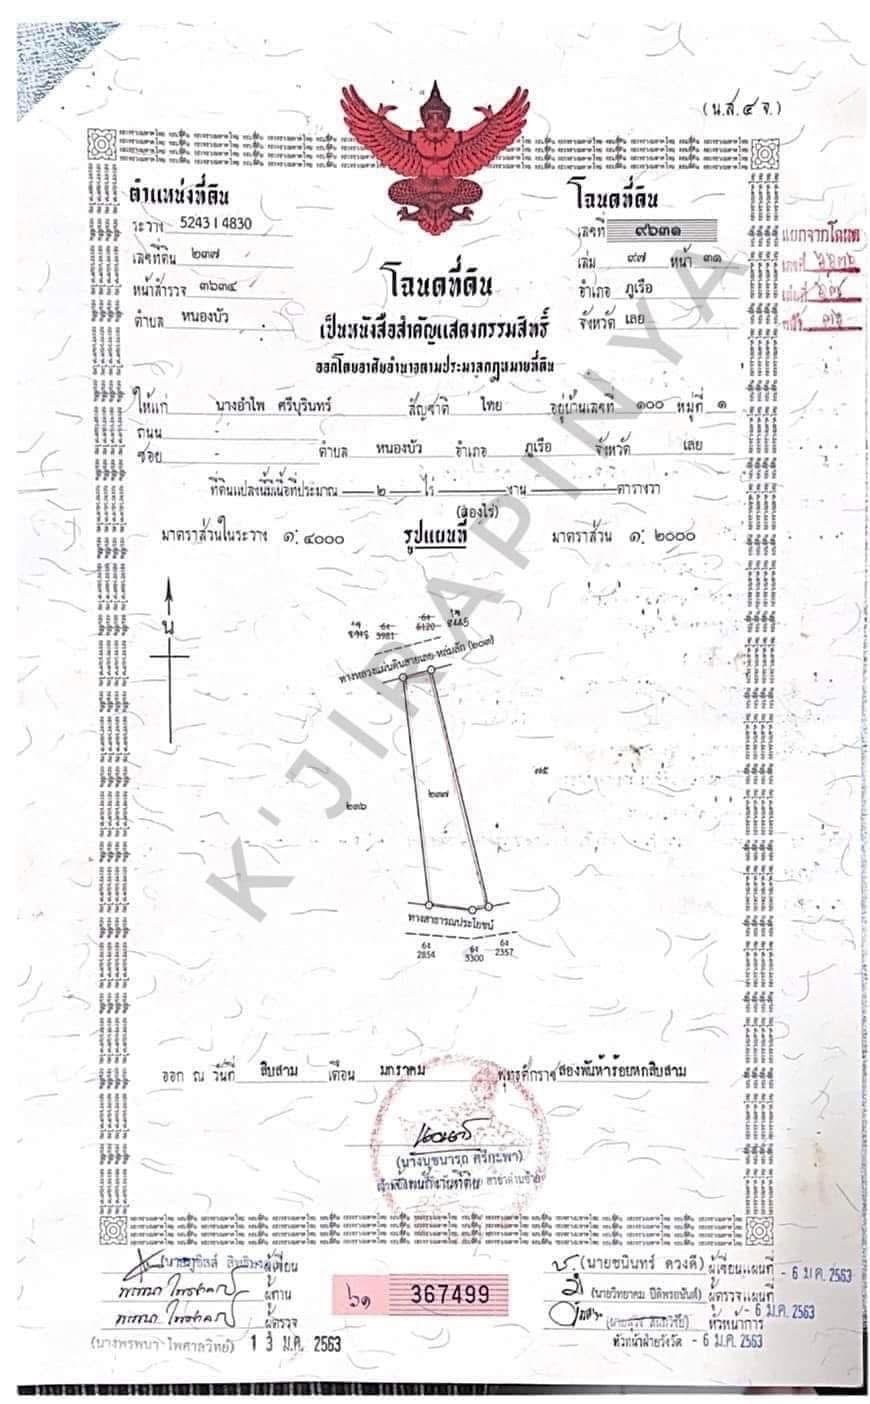 (น.ส.๔ จ.)
ตำแหน่งที่ดิน
ระวาง 5243 I 4830
เลขที่ดิน ๒๓๗
หน้าสำรวจ ๓๖๓๔
ตำบล หนองบัว
โฉนดที่ดิน
เลขที่ ๙๖๓๑
เล่ม ๙๗ หน้า ๓๑
อำเภอ ภูเรือ
จังหวัด เลย
แยกจากโฉนด
เลขที่
เล่มที่
หน้า
โฉนดที่ดิน
เป็นหนังสือสำคัญแสดงกรรมสิทธิ์
ออกโดยอาศัยอำนาจตามประมวลกฎหมายที่ดิน
ให้แก่ นางอำไพ ศรีบุรินทร์ สัญชาติ ไทย อยู่บ้านเลขที่ ๑๐๐ หมู่ที่ ๑
ถนน -
ซอย - ตำบล หนองบัว อำเภอ ภูเรือ จังหวัด เลย
ที่ดินแปลงนี้มีเนื้อที่ประมาณ ๒ ไร่ งาน ตารางวา
(สองไร่)
มาตราส่วนในระวาง ๑:๔๐๐๐ รูปแผนที่ มาตราส่วน ๑:๒๐๐๐
น
64 64
3981 6120 8445
ทางหลวงแผ่นดินสายเลย-หล่มสัก (๒๐๓)
๗๕
๒๓๗
๒๓๖
ทางสาธารณประโยชน์
64 64 64
2854 3300 2357
K'JIRAPINYA
ออก ณ วันที่ สิบสาม เดือน มกราคม พุทธศักราช สองพันห้าร้อยหกสิบสาม
(นางนุชนารถ ศรีกะพา)
เจ้าพนักงานที่ดิน
ผู้เขียน
ผู้ทาน
ผู้ตรวจ
(นางพรพนา ไพศาลวิทย์) 1 3 ม.ค. 2563
๖๑ 367499
(นายชนินทร์ ดวงดี) ผู้เขียนแผนที่ - 6 ม.ค. 2563
(นายวิทยาคม ปิติพรอนันต์) ผู้ตรวจแผนที่
หัวหน้าการ - 6 ม.ค. 2563
หัวหน้าฝ่ายรังวัด - 6 ม.ค. 2563